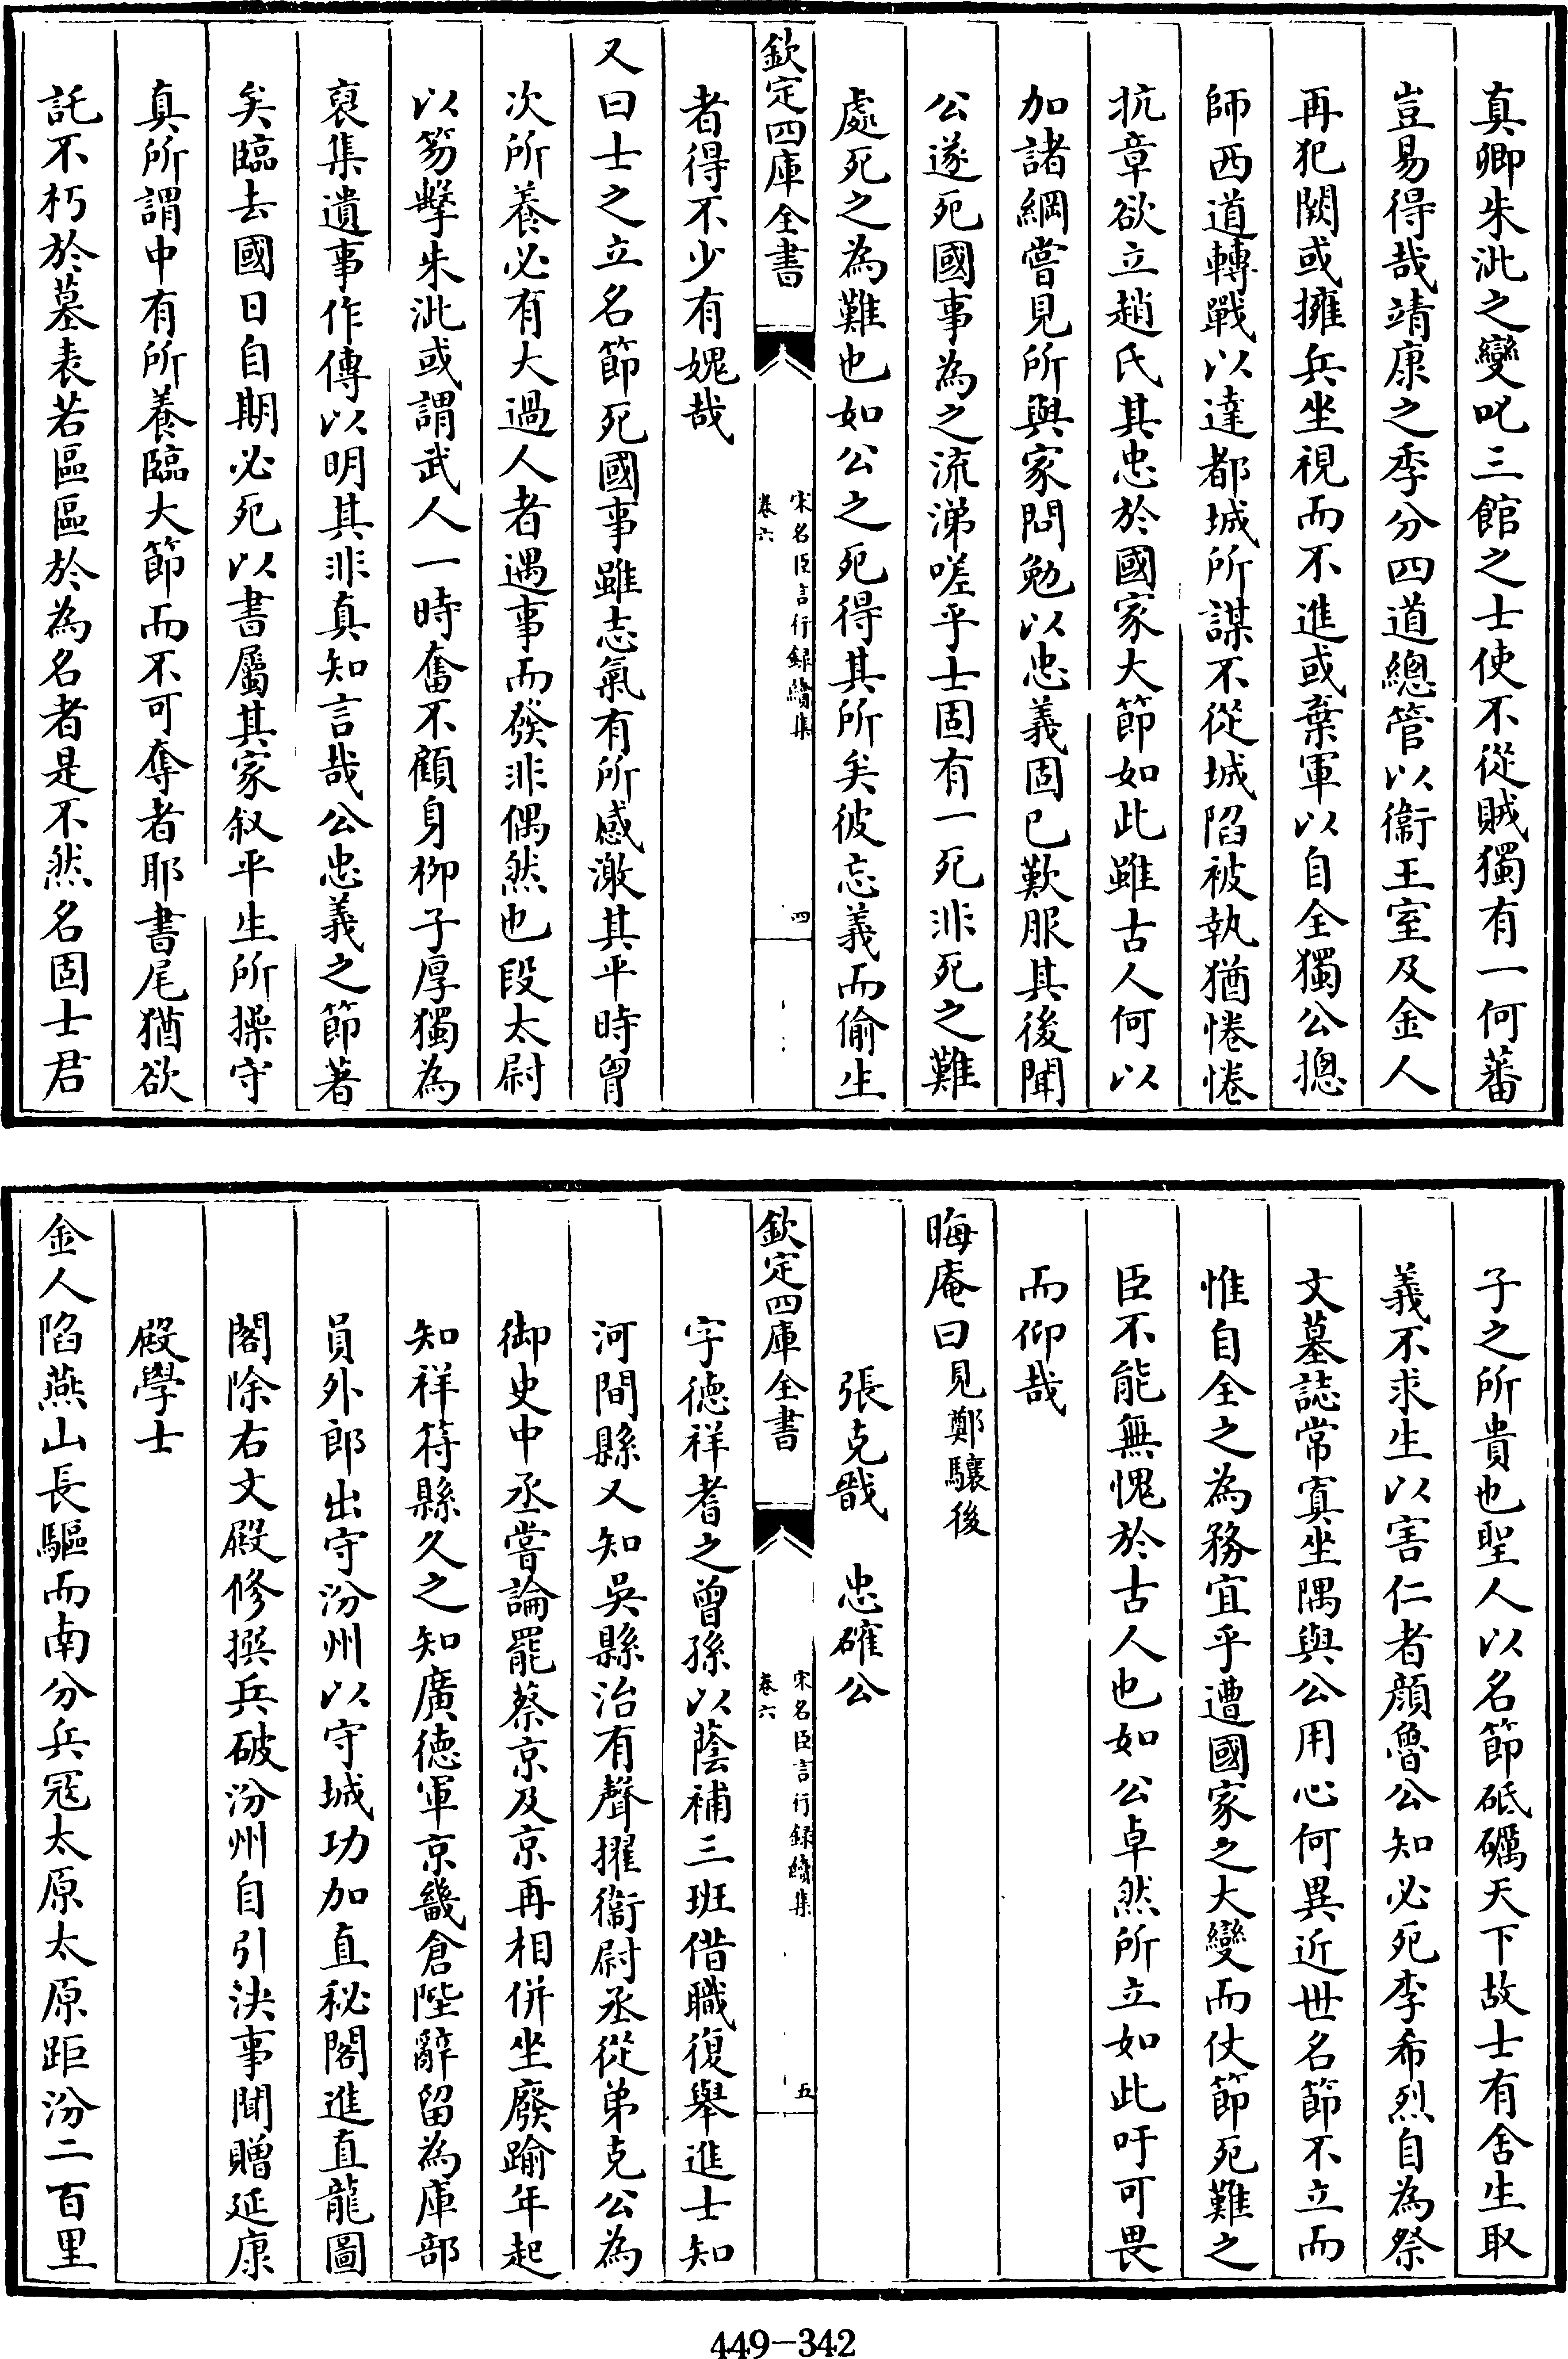 真卿朱泚之變叱三館之士使不從賊獨有一何蕃
豈易得哉靖康之季分四道總管以衞王室及金人
再犯闕或擁兵坐視而不進或棄軍以自全獨公摠
師西道轉戰以達都城所謀不從城陷被執猶惓惓
抗章欲立趙氏其忠於國家大節如此雖古人何以
加諸綱嘗見所與家問勉以忠義固已歎服其後聞
公遂死國事為之流涕嗟乎士固有一死非死之難
處死之為難也如公之死得其所矣彼忘義而偷生
欽定四庫全書
宋名臣言行録續集
卷六
四
者得不少有媿哉
又曰士之立名節死國事雖志氣有所感激其平時胷
次所養必有大過人者遇事而發非偶然也段太尉
以笏擊朱泚或謂武人一時奮不顧身柳子厚獨為
裒集遺事作傳以明其非真知言哉公忠義之節著
矣臨去國日自期必死以書屬其家叙平生所操守
真所謂中有所養臨大節而不可奪者耶書尾猶欲
託不朽於墓表若區區於為名者是不然名固士君
子之所貴也聖人以名節砥礪天下故士有舍生取
義不求生以害仁者顔魯公知必死李希烈自為祭
文墓誌常寘坐隅與公用心何異近世名節不立而
惟自全之為務宜乎遭國家之大變而仗節死難之
臣不能無愧於古人也如公卓然所立如此吁可畏
而仰哉
晦庵曰見鄭驤後
張克戩　忠確公
欽定四庫全書
宋名臣言行録續集
卷六
五
字徳祥耆之曾孫以蔭補三班借職復舉進士知
河間縣又知吳縣治有聲擢衞尉丞從弟克公為
御史中丞嘗論罷蔡京及京再相併坐廢踰年起
知祥符縣久之知廣徳軍京畿倉陛辭留為庫部
員外郎出守汾州以守城功加直秘閣進直龍圖
閣除右文殿修撰兵破汾州自引決事聞贈延康
殿學士
金人陷燕山長驅而南分兵冦太原太原距汾二百里
449-342